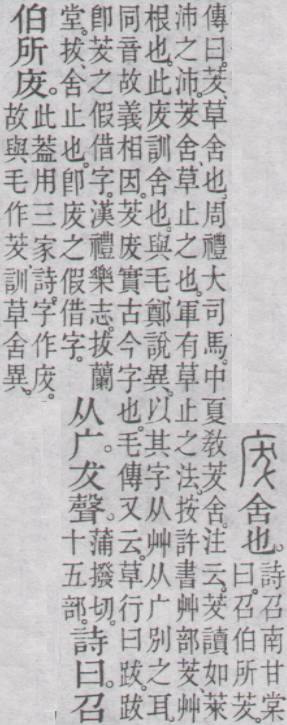 废舍也。詩召南甘棠
曰。召伯所茇。
傳曰。茇、草舍也。周禮大司馬。中夏敎茇舍。注云。茇讀如萊
沛之沛。茇舍、草止之也。軍有草止之法。按許書艸部茇、艸
根也。此废訓舍也。與毛鄭說異。以其字从艸从广別之耳。
同音故義相因。茇废實古今字也。毛傳又云。草行曰跋。跋
卽茇之假借字。漢禮樂志。拔蘭
堂。拔、舍止也。卽废之假借字。
从广。犮聲。蒲撥切。
十五部。詩曰。召
伯所废。此葢用三家詩。字作废。
故與毛作茇訓草舍異。